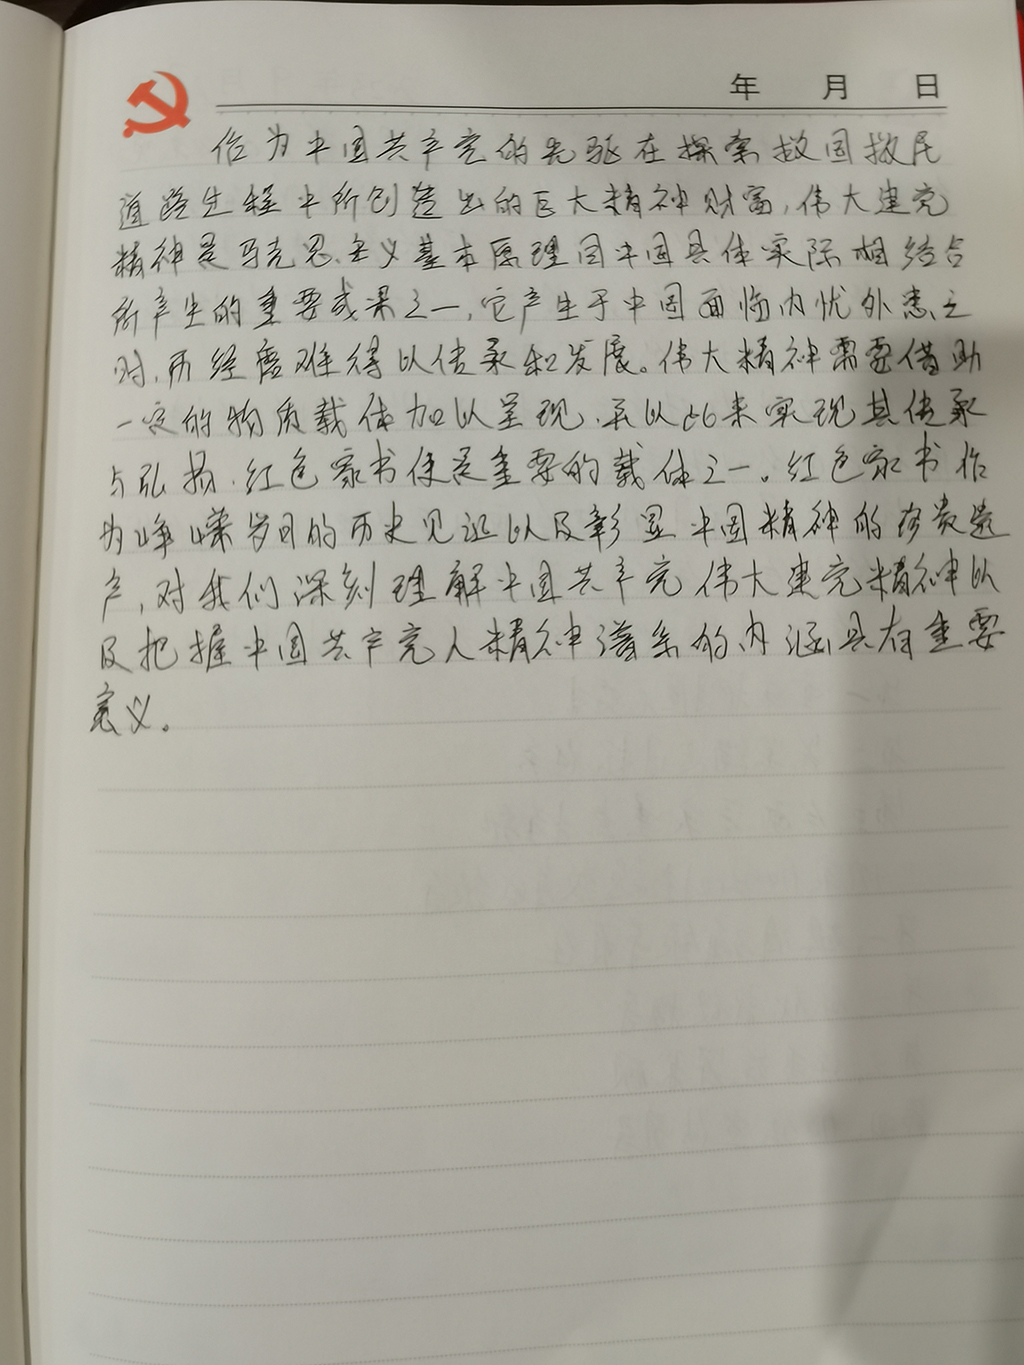 年 月 日
作为中国共产党的先驱在探索救国救民
道路过程中所创造出的巨大精神财富,伟大建党
精神是马克思主义基本原理同中国具体实际相结合
所产生的重要成果之一,它产生于中国面临内忧外患之
时,历经磨难得以传承和发展。伟大精神需要借助
一定的物质载体加以呈现,并以此来实现其传承
与弘扬,红色家书便是重要的载体之一。红色家书作
为峥嵘岁月的历史见证以及彰显中国精神的珍贵遗
产,对我们深刻理解中国共产党伟大建党精神以
及把握中国共产党人精神谱系的内涵具有重要
意义。